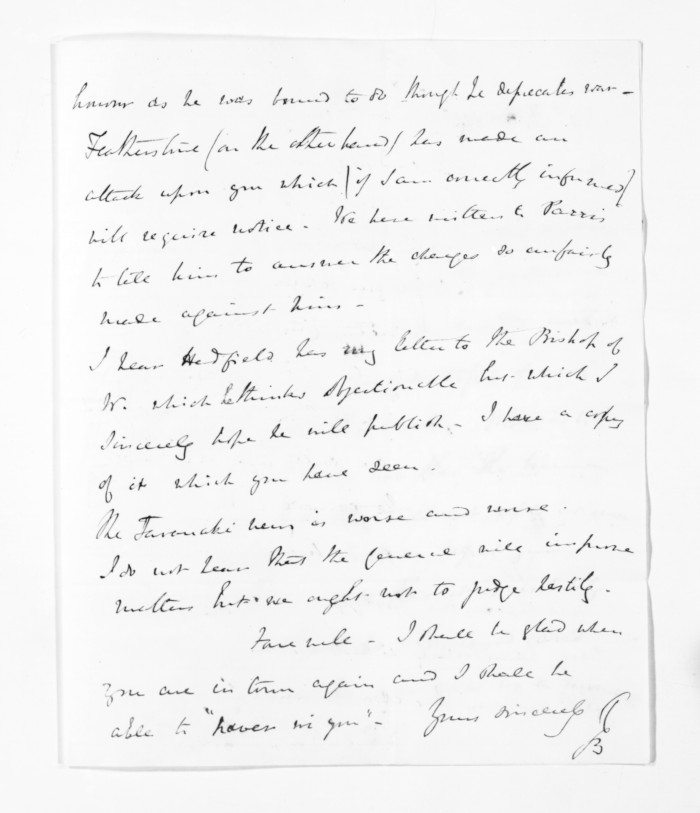 honour as he was bound to do though he deprecates war -
Featherstone (on the other hand) has made an
attack upon you which (if I am correctly informed)
will require notice - We have written to Parris
to tell him to answer the charges so unfairly
made against him -
I hear Hadfield has my letter to the Bishop of
W. which he thinks objectionable but which I
sincerely hope he will publish - I have a copy
of it which you have seen.
The Taranaki news is worse and worse.
I do not hear that the General will improve
matters but we ought not to judge hastily.
Farewell - I shall be glad when
you are in town again and I shall be
able to "haver wi you" - Yours sincerely